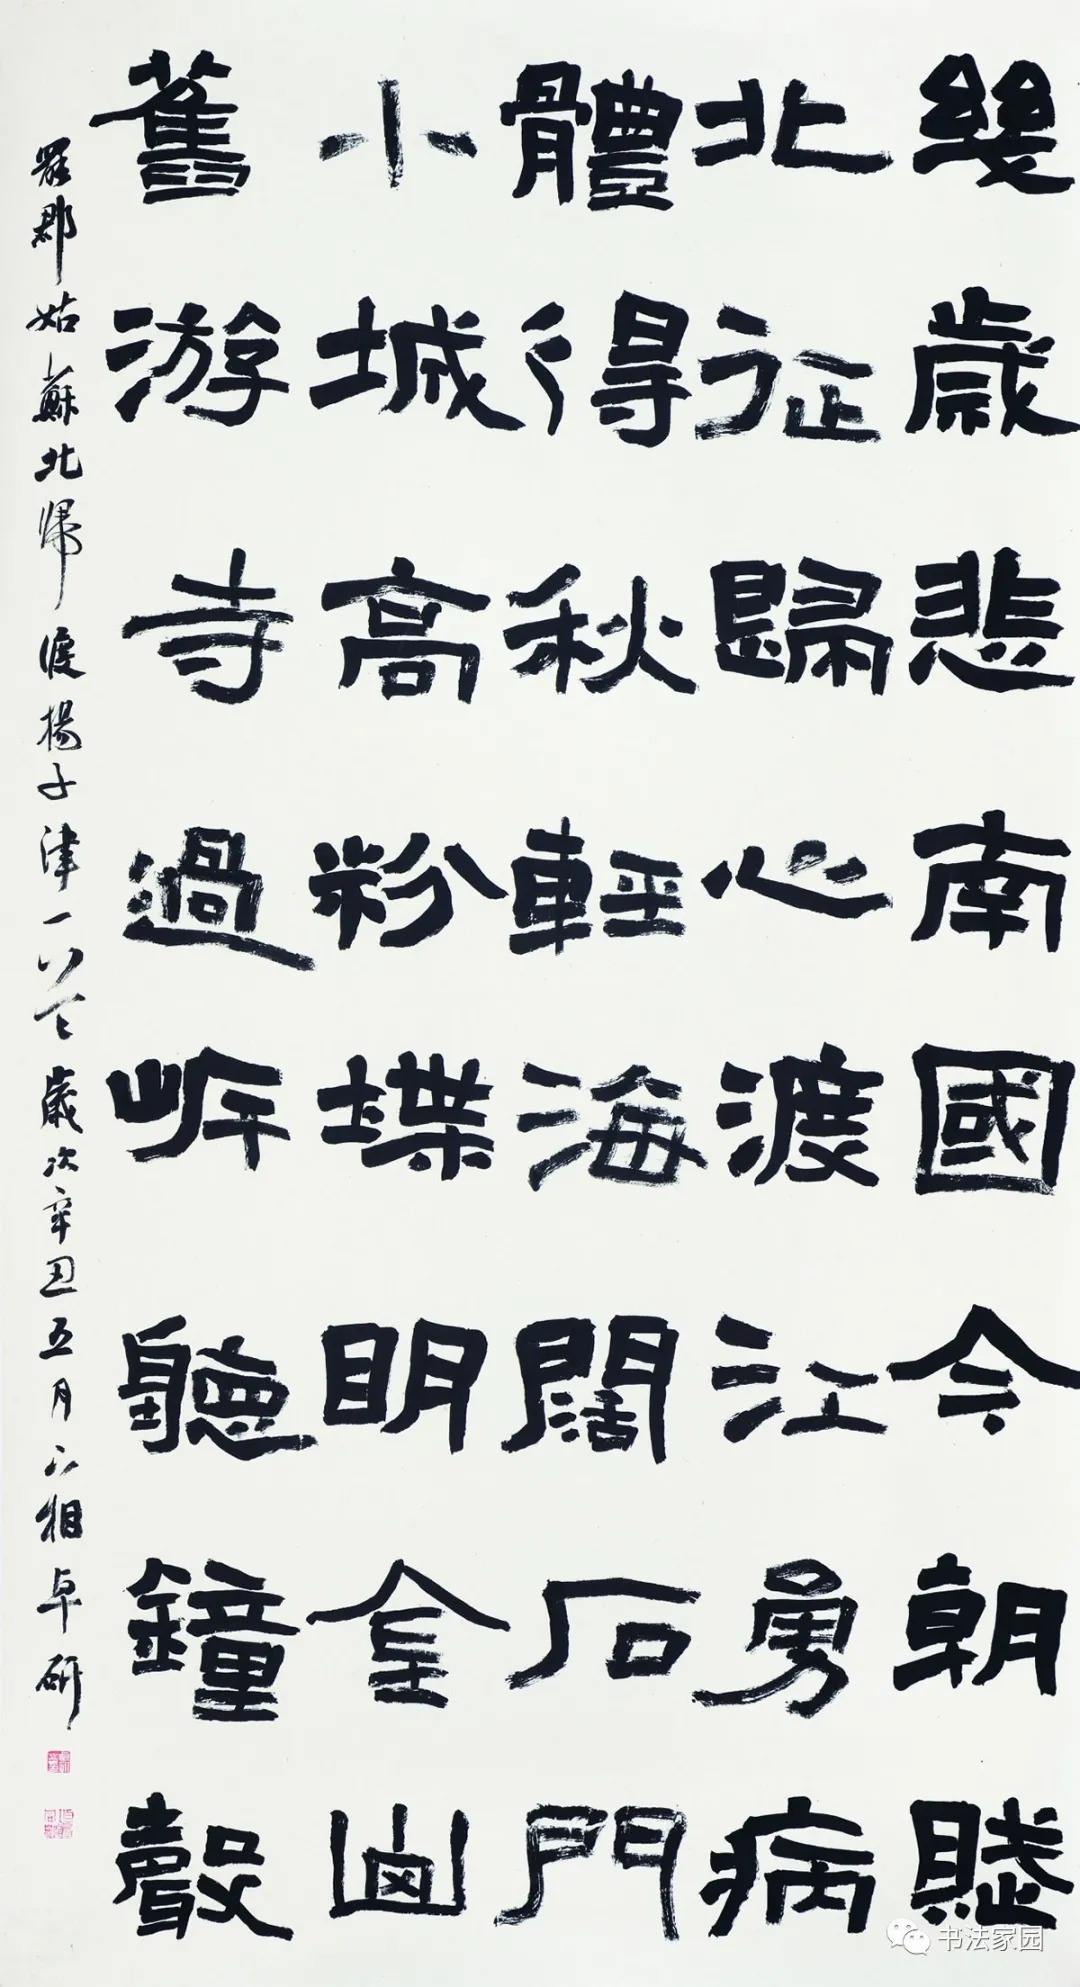 幾歲悲南國今朝賦
北征歸心渡江勇病
體得秋輕海闊石門
小城高粉堞明金山
舊游寺過岸聽鐘聲
罷郡姑蘇北歸渡揚子津一首歲次辛丑五月下相卓研
书法家园